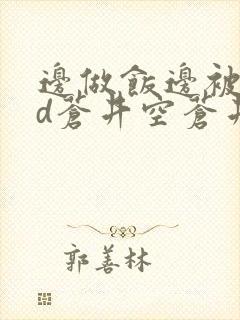 邊做飯邊被
d蒼井空蒼井
郭善林